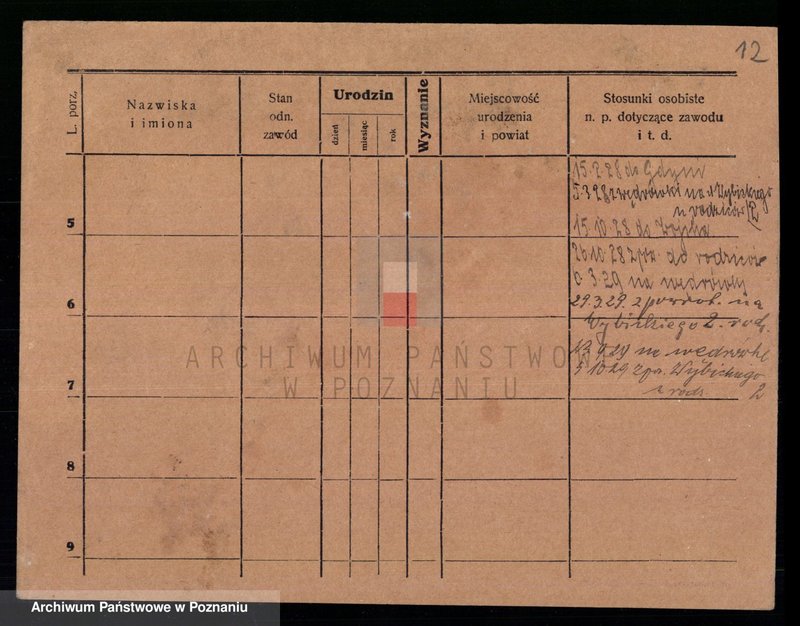 12
L. porz.
Nazwiska
i imiona
Stan
odn.
zawód
Urodzin
dzień
miesiąc
rok
Wyznanie
Miejscowość
urodzenia
i powiat
Stosunki osobiste
n. p. dotyczące zawodu
i t. d.
15.2.28 do Gdyni
5.3.28 z wędrówki na Wybickiego
u rodziców 2
5
15.10.28 do
26.10.28 z do rodziców
6.3.29 na wędrówkę
6
29.3.29. z powrot. na
Wybickiego 2. rodz.
9.29 na wędrówkę
7
5.10.29 z Wybickiego
rodz. 2
8
9
ARCHIWUM PAŃSTWOWE
W POZNANIU
Archiwum Państwowe w Poznaniu